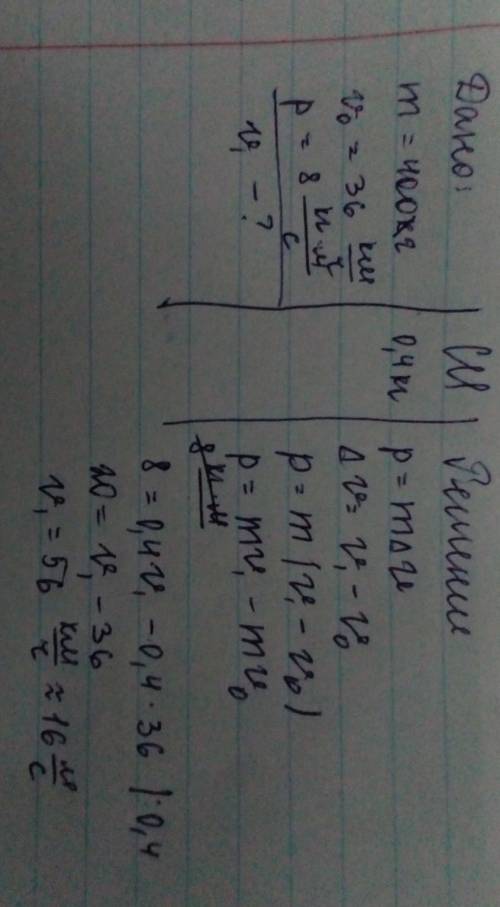 Дано:
m = 400г
v₀ = 36 км/ч
p = 8 кг м/с
v₁ - ?
СИ
0,4 кг
Решение
p = mΔv
Δv = v₁ - v₀
p = m(v₁ - v₀)
p = mv₁ - mv₀
8 = 0,4v₁ - 0,4 · 36 | : 0,4
20 = v₁ - 36
v₁ = 56 км/ч ≈ 16 м/с